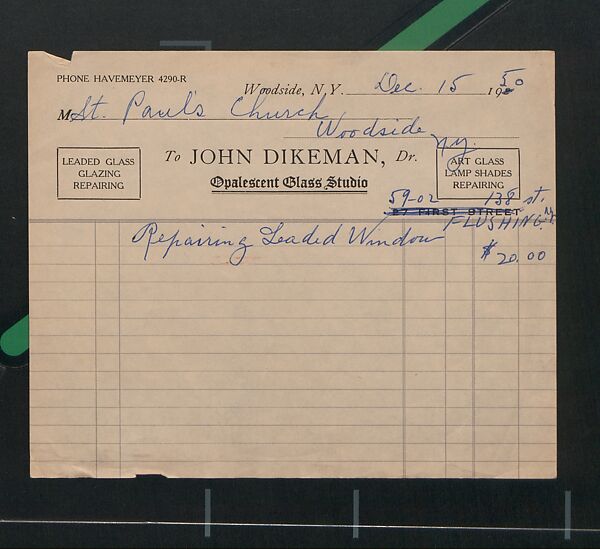 PHONE HAVEMEYER 4290-R
Woodside, N.Y. Dec. 15 1950
M St. Paul's Church
Woodside N.Y.
LEADED GLASS
GLAZING
REPAIRING
To JOHN DIKEMAN, Dr.
Opalescent Glass Studio
ART GLASS
LAMP SHADES
REPAIRING
59-02 138 st.
27 FIRST STREET
FLUSHING. N.Y.
Repairing Leaded Window
$ 20.00